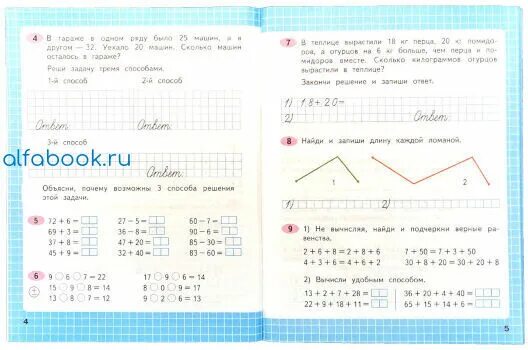 4 В гараже в одном ряду было 25 машин, а в
другом — 32. Уехало 20 машин. Сколько машин
осталось в гараже?
Реши задачу тремя способами.
1-й способ 2-й способ
Ответ: Ответ:
3-й способ
alfabook.ru
Ответ:
Объясни, почему возможны 3 способа решения
этой задачи.
5 72 + 6 = 27 − 5 = 60 − 7 =
69 + 3 = 36 − 8 = 90 − 6 =
37 + 8 = 47 + 20 = 85 − 30 =
45 + 9 = 32 + 40 = 83 − 60 =
6 9 6 7 = 22 17 9 6 = 14
15 9 8 = 14 8 0 6 = 14
13 8 7 = 12 9 6 8 = 13
4
7 В теплице вырастили 18 кг перца, 20 кг помидо-
ров, а огурцов на 6 кг больше, чем перца и по-
мидоров вместе. Сколько килограммов огурцов
вырастили в теплице?
Закончи решение и запиши ответ.
1) 18+20=
2) Ответ:
8 Найди и запиши длину каждой ломаной.
1 2
1) 2)
9 1) Не вычисляя, найди и подчеркни верные ра-
венства.
2 + 6 + 8 = 2 + 8 + 6 7 + 50 = 7 + 3 + 50
4 + 3 + 6 = 4 + 6 + 2 30 + 8 + 20 = 30 + 20 + 8
2) Вычисли удобным способом.
13 + 2 + 7 + 28 = 36 + 20 + 4 + 40 =
22 + 9 + 18 + 11 = 65 + 15 + 14 + 6 =
5